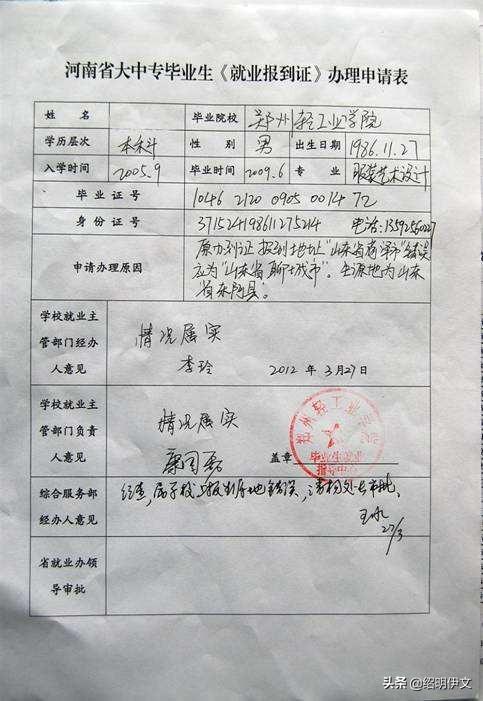 河南省大中专毕业生《就业报到证》办理申请表
姓 名 毕业院校 郑州轻工业学院
学历层次 本科 性 别 男 出生日期 1986.11.27
入学时间 2005.9 毕业时间 2009.6 专 业 服装艺术设计
毕 业 证 号 1046 2120 0905 0014 72
身 份 证 号 电话:
申请办理原因
原办到证报到地址"山东省菏泽市"错误
应为"山东省聊城市"。生源地为山东
省东阿县。
学校就业主
管部门经办
人意见
情况属实
李玲 2012 年 3月27日
学校就业主
管部门负责
人意见
情况属实
盖章
郑州轻工业学院
毕业生就业
指导中心
综合服务部
经办人意见
经查,属学校上报生源地错误,请
27/3
省就业办领
导审批
头条 @绍明伊文